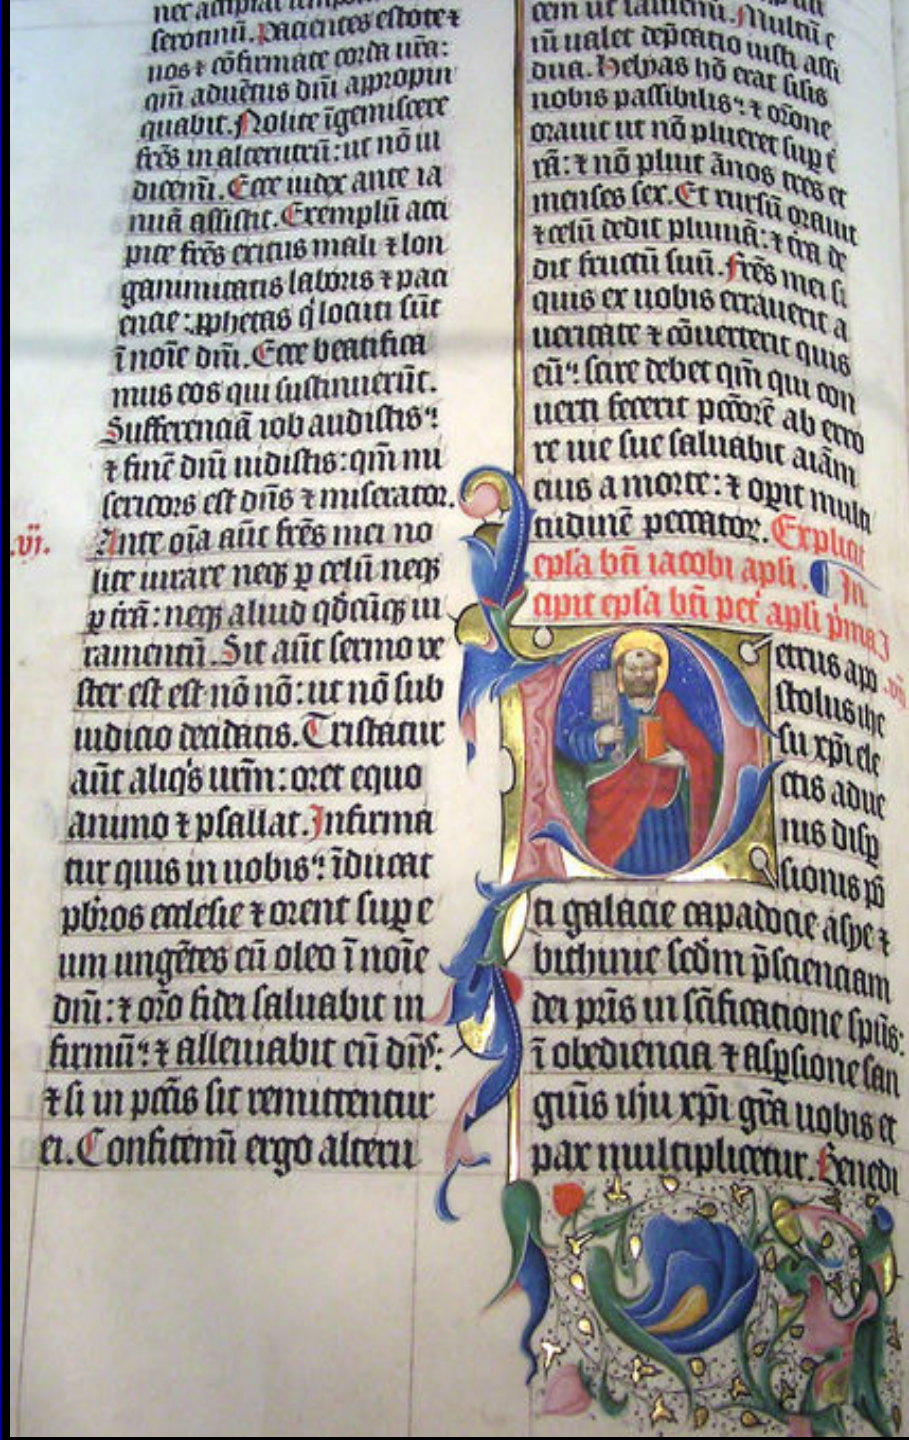 nec accipiat
serotinū. Pacientes estote ⁊
uos ⁊ cōfirmate corda ura̅:
qm̅ aduētus dn̅i appropin
quabit. Nolite īgemiscere
fr̅es in alterutrū: ut nō iu
dicemī. Ecce iudex ante ia
nuā assistit. Exemplū acci
pite fr̅es exitus mali ⁊ lon
ganimitatis laboris ⁊ paci
encie: ꝓphetas q̍ locuti sūt
ī noīe dn̅i. Ecce beatifica
mus eos qui sustinuerūt.
Sufferenciā iob audistis:
⁊ finē dn̅i uidistis: qm̅ mi
sericors est dn̅s ⁊ miserator.
.vi.
Ante oīa aūt fr̅es mei no
lite iurare neqꝫ ꝑ celū neqꝫ
ꝑ trā̅: neqꝫ aliud qd̅cūqꝫ iu
ramentū. Sit aūt sermo ve
ster est est nō nō: ut nō sub
iudicio decidatis. Tristatur
aūt aliq̍s urm̅: oret equo
animo ⁊ psallat. Infirma
tur quis in uobis: īducat
pb̅ros ecclesie ⁊ orent suꝑ e
um ungētes eū oleo ī noīe
dn̅i: ⁊ or̅o fidei saluabit in
firmū: ⁊ alleuiabit eū dn̅s:
⁊ si in pctīs sit remittentur
ei. Confitemī ergo alteru
cem ut saluemī. Multū e
ī ualet dep̅catio iusti assi
dua. Helyas hō erat sil̅is
nobis passibilis: ⁊ or̅one
orauit ut nō plueret suꝑ t
rā̅: ⁊ nō pluit ānos tres et
menses sex. Et rursū orauit
⁊ celū dedit pluuiā: ⁊ tr̅a de
dit fructū suū. Fr̅es mei si
quis ex uobis errauerit a
ueritate ⁊ cōuerterit quis
eū: scire debet qm̅ qui con
uerti fecerit pctōrē ab erro
re uie sue saluabit aīam
eius a morte: ⁊ oꝑit multi
tudinē peccatoꝝ. Explicit
epl̅a bt̅i iacobi apl̅i. In
cipit epl̅a bt̅i pet̍ apl̅i p̍ma
Petrus apo
stolus ihe
su xp̅i ele
ctis adue
nis disꝑ
sionis pō
ti galacie capadocie asye ⁊
bithinie scd̅m p̅scienciam
dei pr̅is in sc̅ificatione sp̅us:
ī obediencia ⁊ asꝑsione san
guīs ihu xp̅i gr̅a uobis et
pax multiplicetur. Benedi